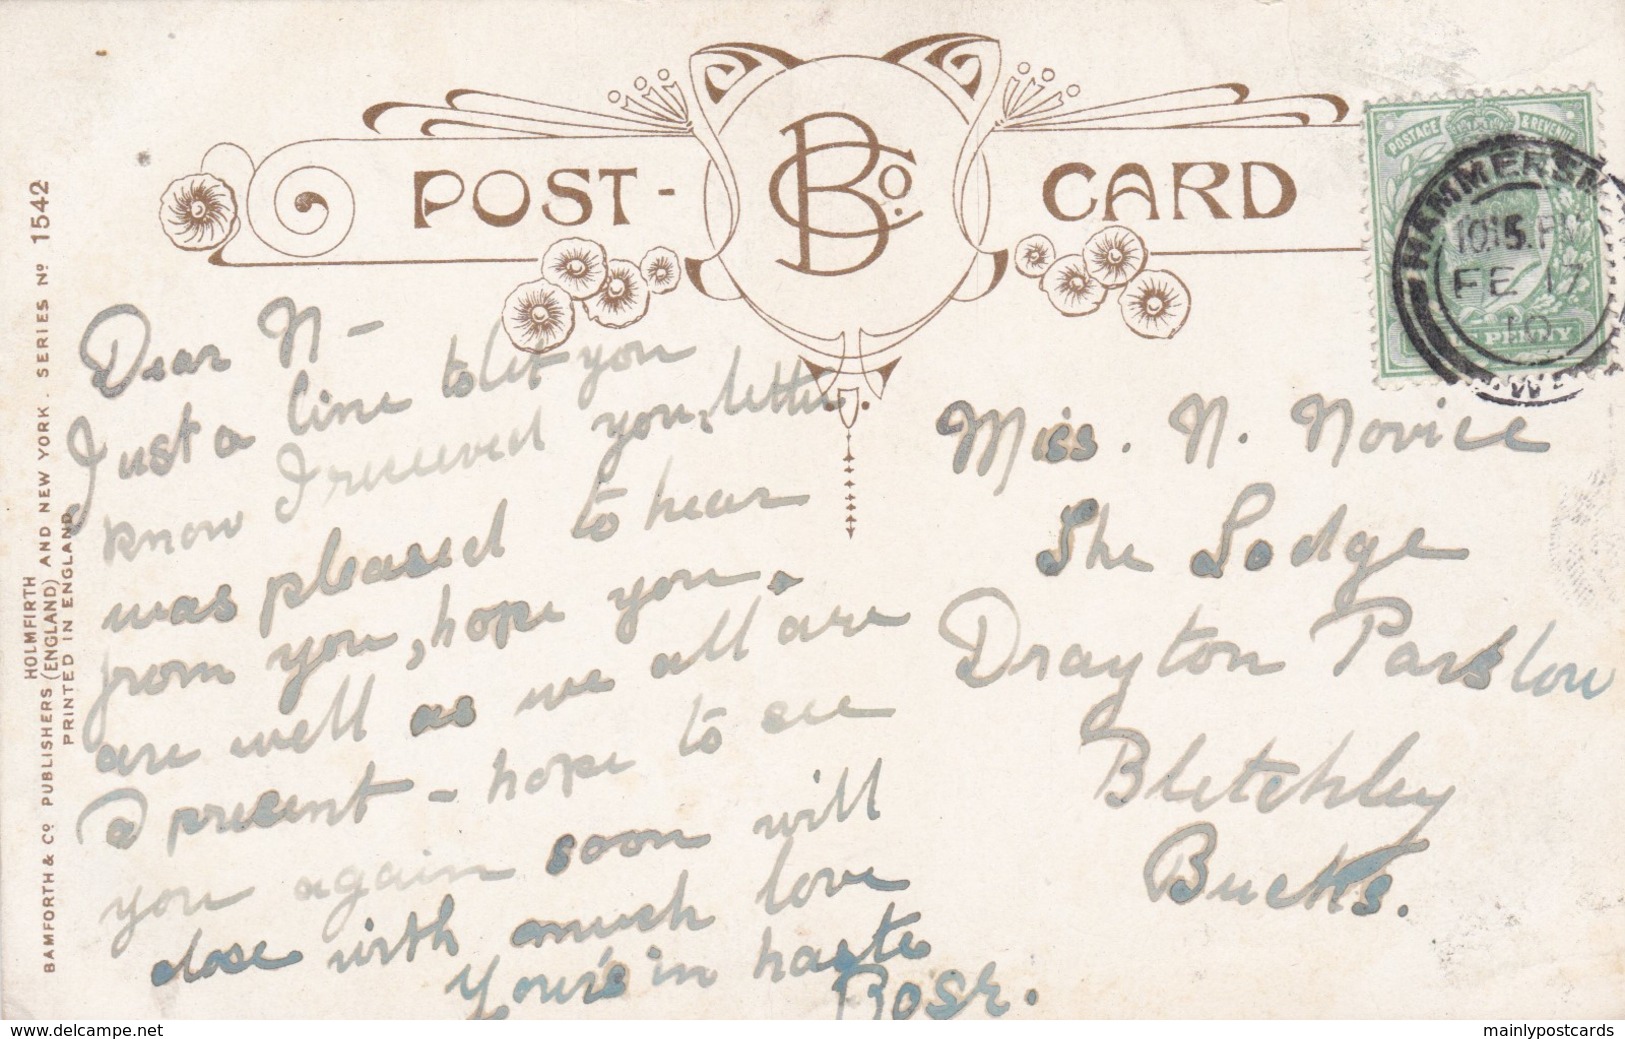 POST-CARD
BCo.
POSTAGE & REVENUE
HAMMERSM
10.15.PM
FE 17
10
W
PENNY
HOLMFIRTH
BAMFORTH & Co PUBLISHERS (ENGLAND) AND NEW YORK. SERIES No 1542
PRINTED IN ENGLAND
Dear N -
Just a line to let you
know I received your letter
was pleased to hear
from you, hope you.
are well as we all are
a present - hope to see
you again soon will
close with much love
Your's in haste
Rose.
Miss. N. Novice
The Lodge
Drayton Parslow
Bletchley
Bucks.
www.delcampe.net
mainlypostcards